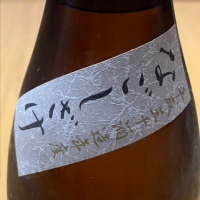 なごしざけ
平成三十酒造年度